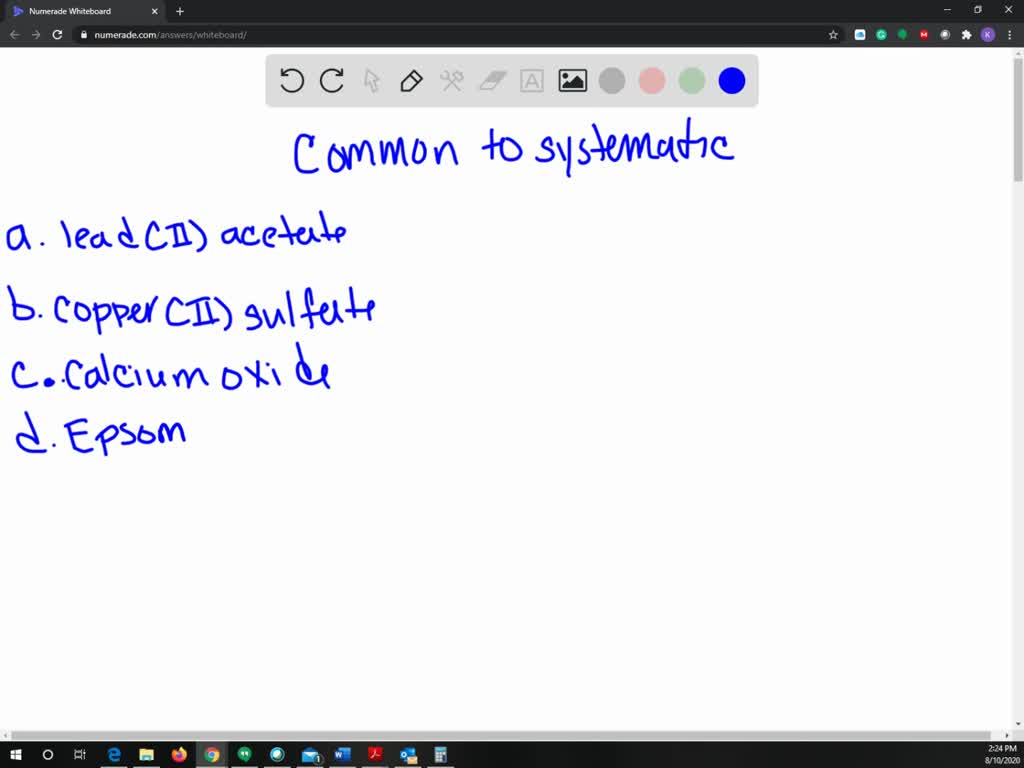 Numerade Whiteboard
numerade.com/answers/whiteboard/
Common to systematic
a. lead(II) acetate
b. copper(II) sulfate
c. calcium oxide
d. Epsom
2:24 PM
8/10/2020